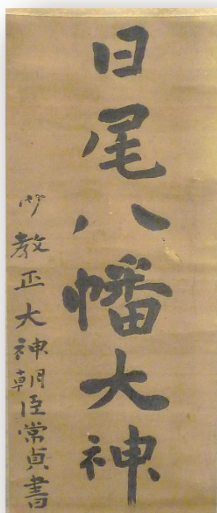 日尾八幡大神
少教正大神朝臣常貞書